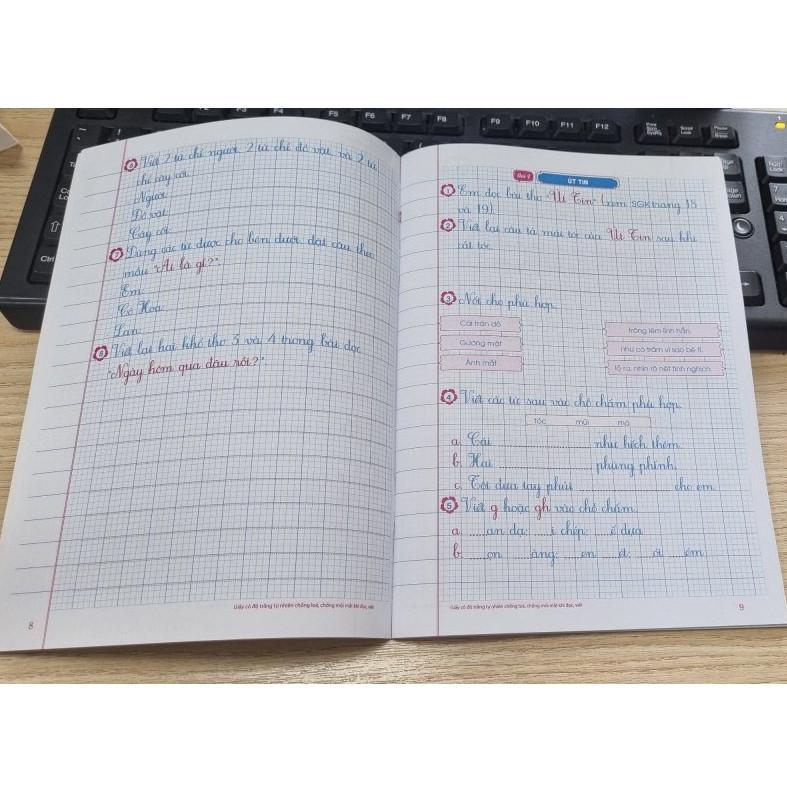 6 Viết 2 từ chỉ người, 2 từ chỉ đồ vật và 2 từ
chỉ cây cối.
Người:
Đồ vật:
Cây cối:
7 Dùng các từ được cho bên dưới đặt câu theo
mẫu "Ai là gì?".
Em
Cô Hoa
Lan
8 Viết lại hai khổ thơ 3 và 4 trong bài đọc
"Ngày hôm qua đâu rồi?".
Giấy có độ trắng tự nhiên chống loá, chống mỏi mắt khi đọc, viết
8
Bài 4
ÚT TIN
1 Em đọc bài thơ "Út Tin" (xem SGK trang 18
và 19)
2 Viết lại câu tả mái tóc của Út Tin sau khi
cắt tóc.
3 Nối cho phù hợp.
Cái trán dô
trông lém lỉnh hẳn.
Gương mặt
như có trăm vì sao bé tí.
Ánh mắt
lộ ra, nhìn rõ nét tinh nghịch.
4 Viết các từ sau vào chỗ chấm phù hợp.
tóc mũi má
a. Cái ........ như hếch thêm.
b. Hai ........ phúng phính.
c. Tôi đưa tay phủi ........ cho em.
5 Viết g hoặc gh vào chỗ chấm.
a. ......an dạ; ....i chép; ....ế dựa
b. ......ọn ....àng; ....en ....ét; ....ói ....ém
Giấy có độ trắng tự nhiên chống loá, chống mỏi mắt khi đọc, viết
9
F3
F4
F5
F6
F7
F8
F9
F10
F11
F12
Print
Scrn
SysRq
Scroll
Lock
Pause
Break
Ctrl